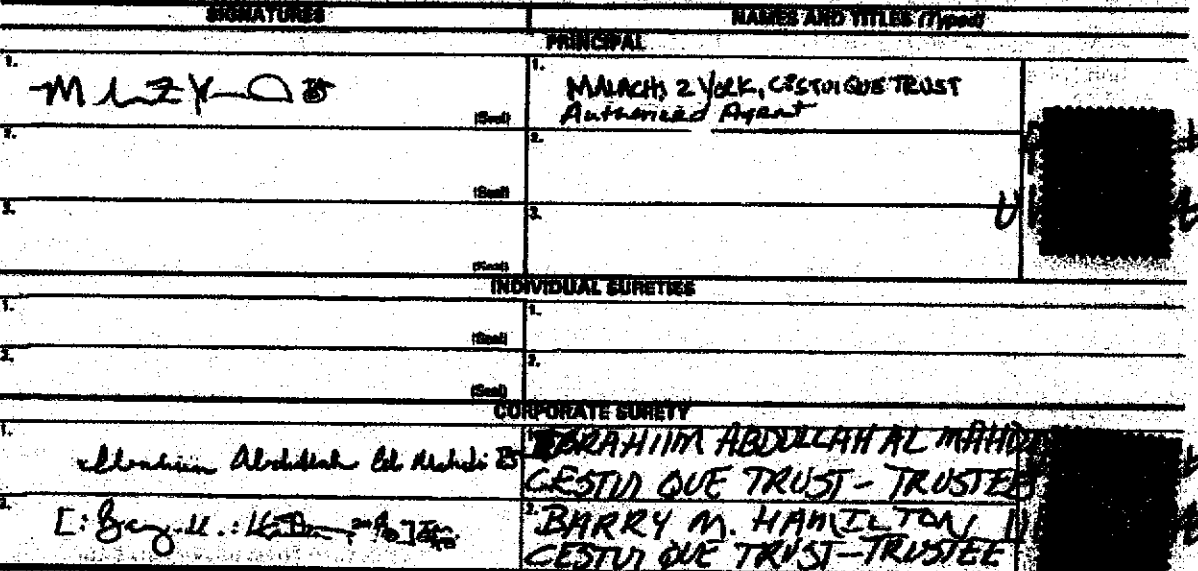 SIGNATURES NAMES AND TITLES (Typed)
PRINCIPAL
1. 1. MALACHI Z YORK, CESTUI QUE TRUST
Authorized Agent
(Seal)
2. 2.
(Seal)
3. 3.
(Seal)
INDIVIDUAL SURETIES
1. 1.
(Seal)
2. 2.
(Seal)
CORPORATE SURETY
1. Ibrahiim Abdullah Al Mahdi 1. IBRAHIIM ABDULLAH AL MAHDI
CESTUI QUE TRUST - TRUSTEE
2. 2. BARRY M. HAMILTON,
CESTUI QUE TRUST-TRUSTEE